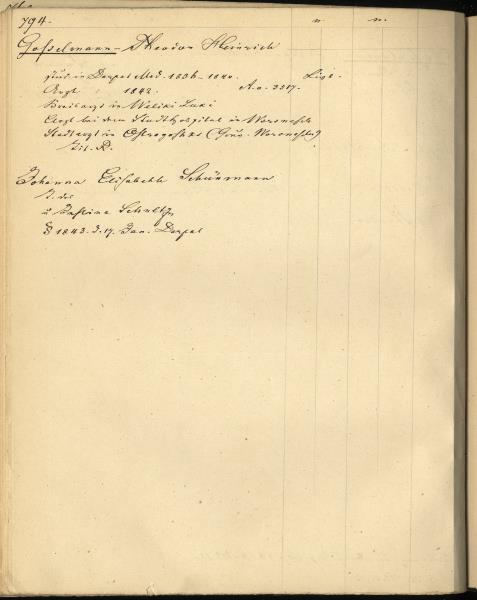 794.
Gosselmann - Theodor Heinrich
stud. in Dorpat Med. 1836 - 1840. Livl.
Arzt 1842. A. a. 3317.
Kreisarzt in Weliki Luki
Arzt bei dem Stadthospital in Woronesh
Stadtarzt in Ostrogoshsk (Gouv. Woronesh)
Tit. R.
Johanna Elisabeth Schünmann
T. des
u
1843. d. 17. Jan. Dorpat